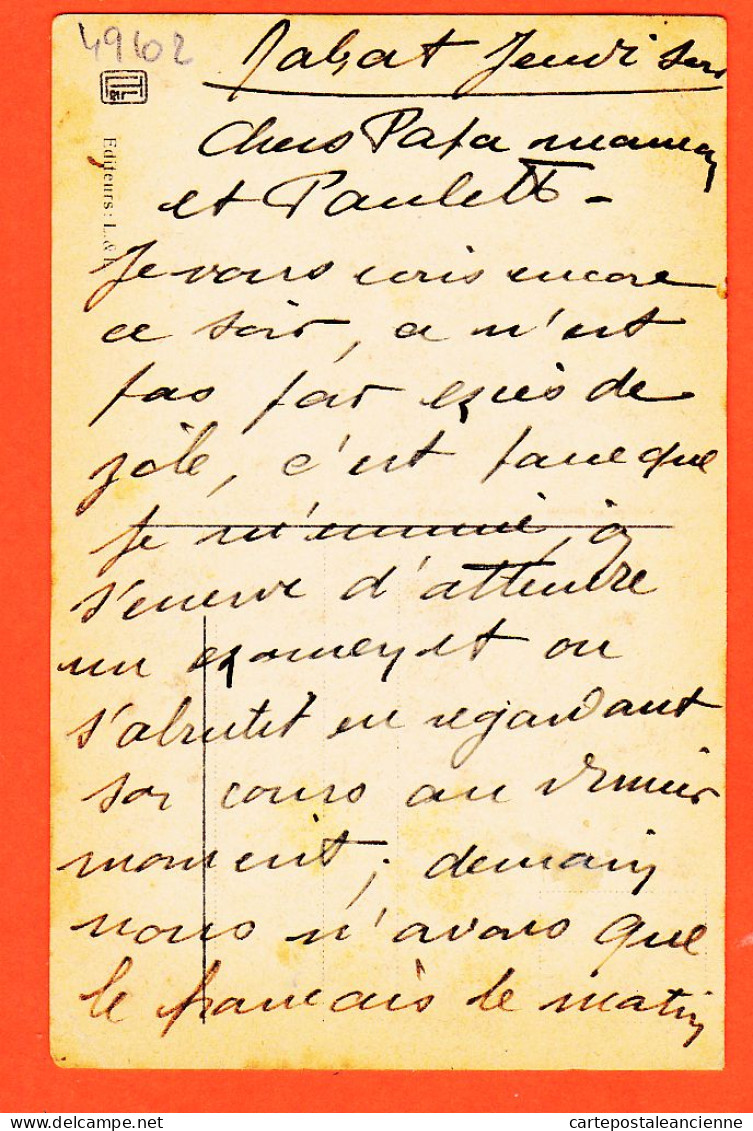 49602
Rabat Jeudi soir
Editeurs : L. &
Chers Papa maman
et Paulette -
Je vous écris encore
ce soir, ce n'est
pas par excès de
zèle, c'est parce que
je m'ennuie, on
s'énerve d'attendre
un examen et on
s'abrutit en regardant
son cours au dernier
moment ; demain
nous n'avons que
le français le matin
delcampe.net
cartepostaleancienne